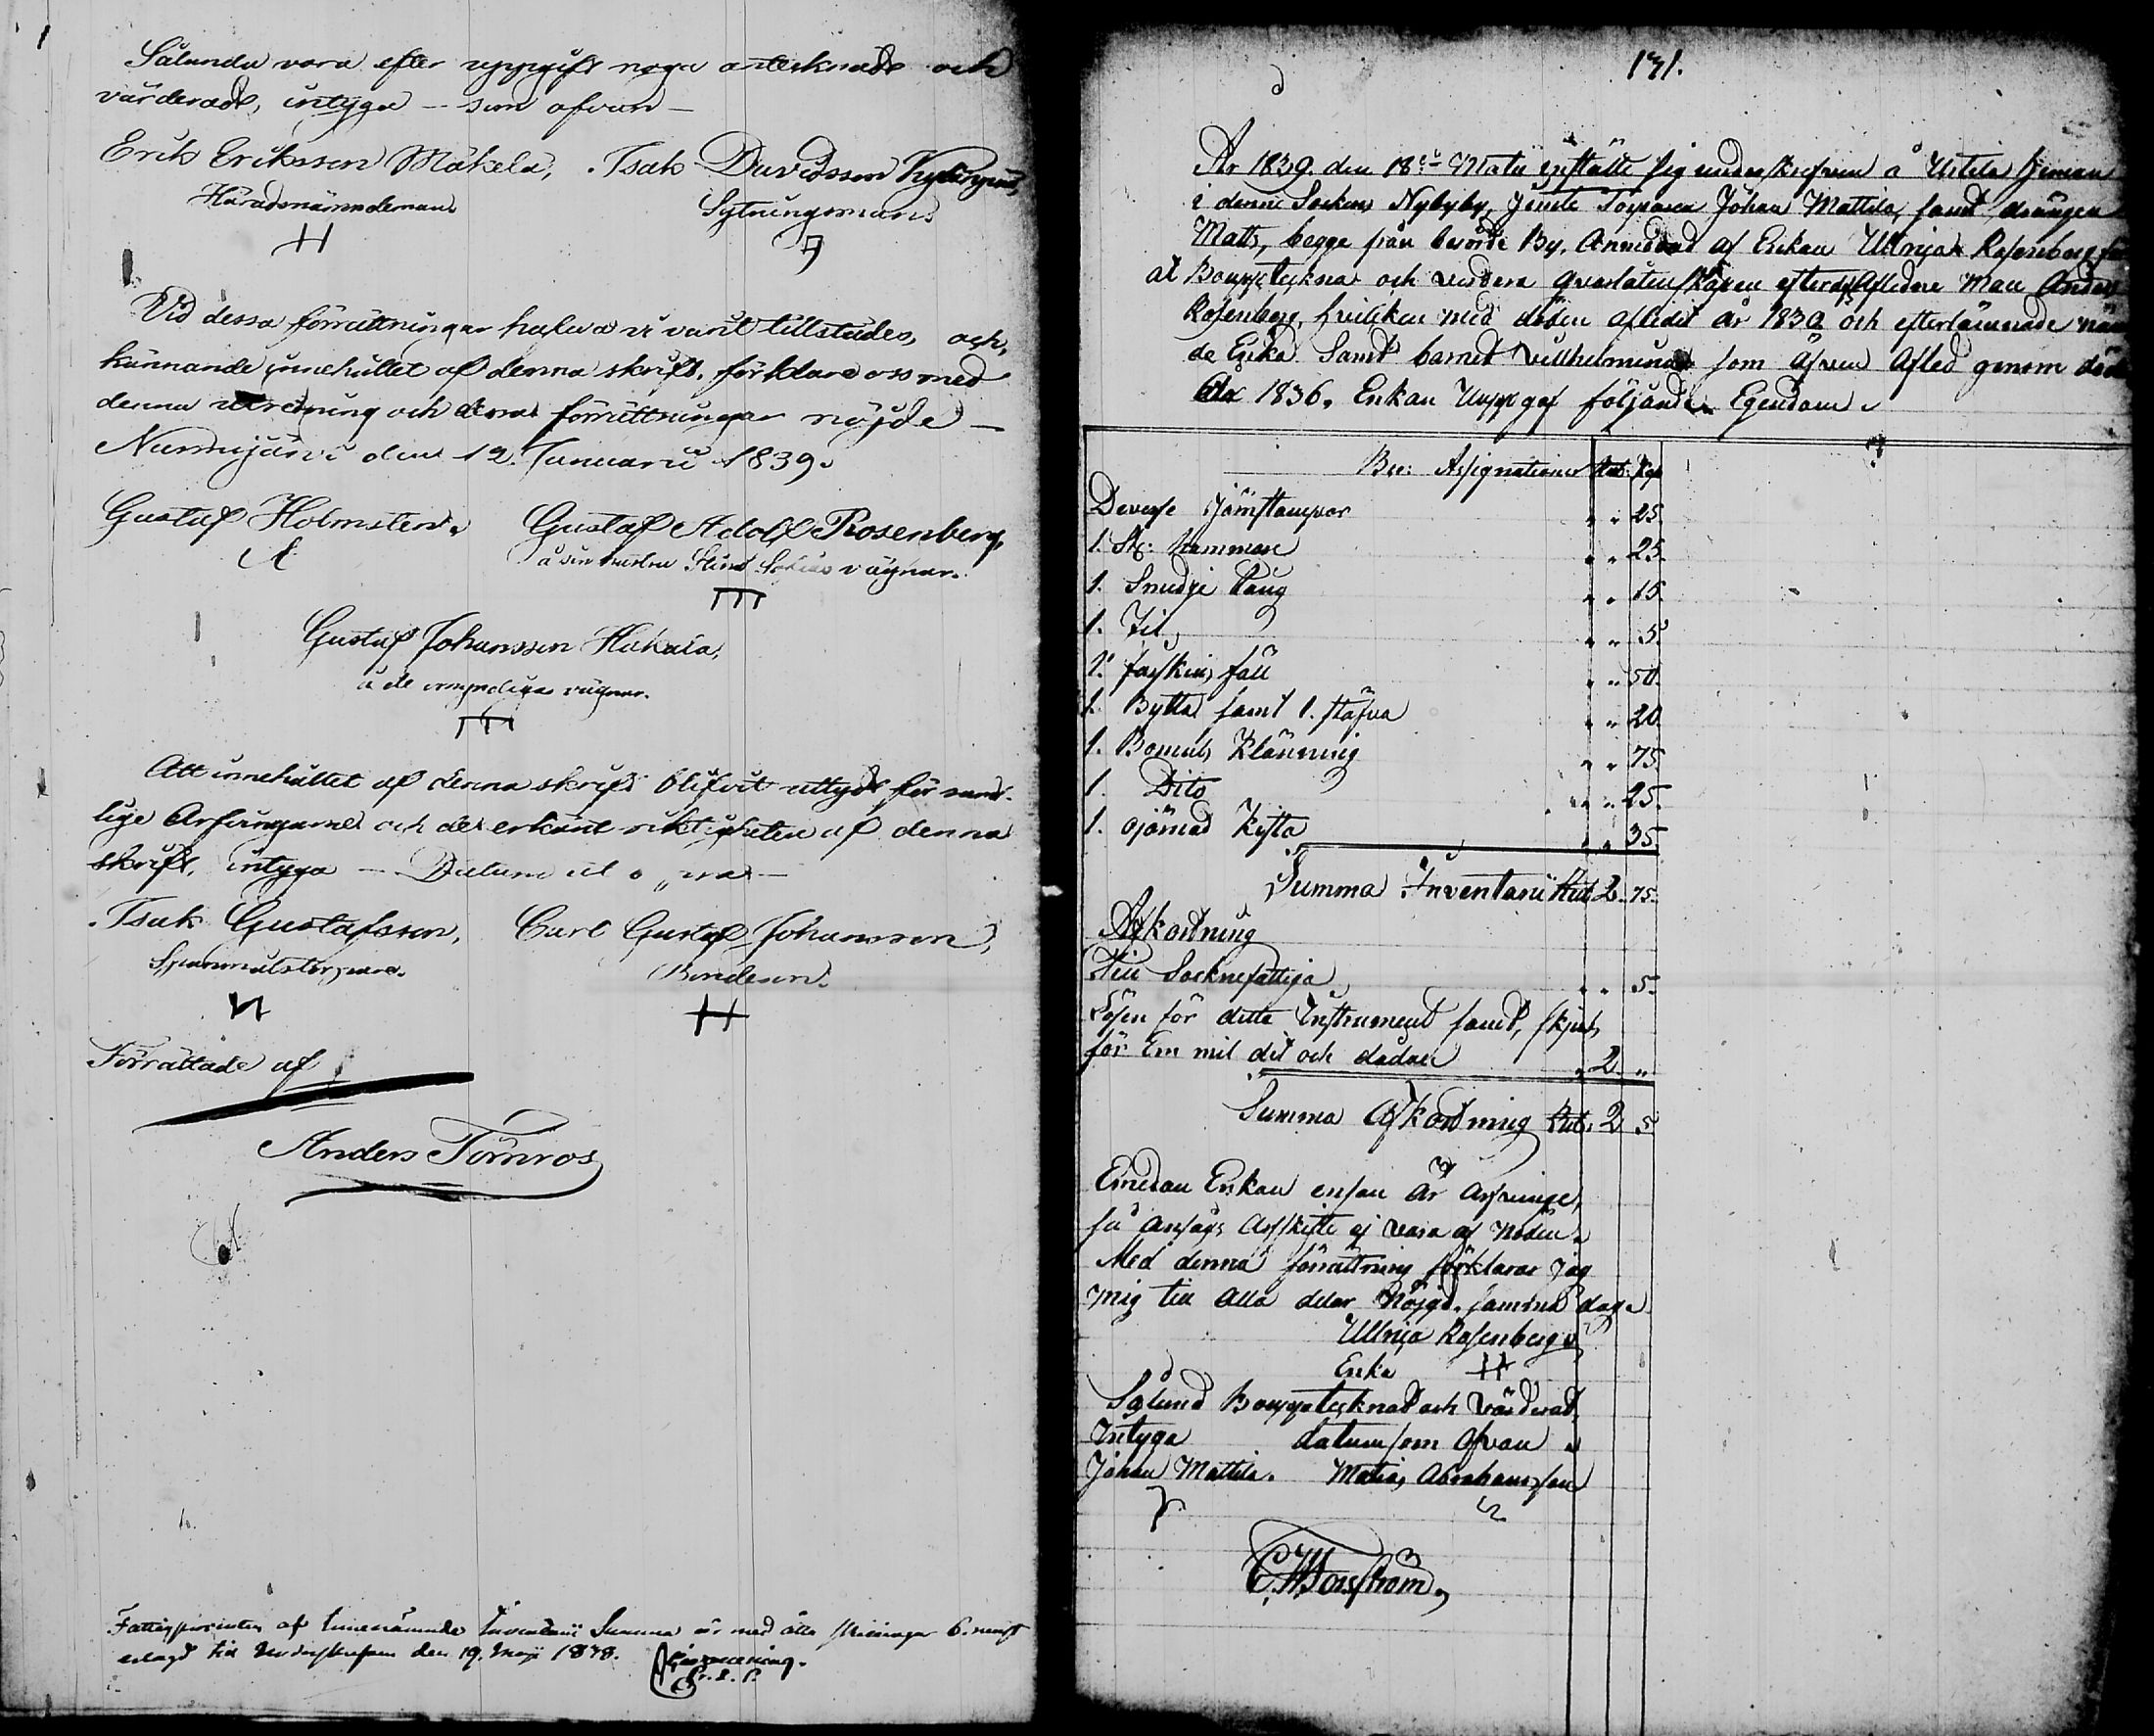 Sålunda vara efter uppgift noga antecknade och
värderade, intyga — som ofvan —
Erik Eriksson Mäkelä, Isak Davidsson
Häradsnämndeman. Sytningsman.
Vid dessa förrättningar hafva vi varit tillstädes, och,
kännande innehållet af denna skrift, förklara oss med
denna utredning och dessa förrättningar nöjde —
Nurmijärvi den 12. Januarii 1839.
Gustaf Holmsten. Gustaf Adolf Rosenberg,
å sin hustru Stina Sofias vägnar.
Gustaf Johansson Hakala,
å de omyndigas vägnar.
Att innehållet af denna skrift blifvit uttydt för samt-
lige Arfvingarne och de erkänt riktigheten af denna
skrift, intyga — Datum ut supra —
Isak Gustafsson, Carl Gustaf Johansson,
Bondeson.
Förrättade af
Anders Törnroos
Fattigprocenten af Innenämnde Inventarii Summa är med åtta
erlagd till Underskrefven den 19. Maji 1838.
131.
År 1839. den 18de instälte sig underskrefven å Uotila hemman
i denna Sockens Nybyby, Jemte Torparen Johan Mattila, samt drängen
Matts, begge från berörde By, Anmodad af Enkan Ullrija Rosenberg
at Bouppteckna och värdera qvarlåtenskapen efter dess Aflidne Man Anders
Rosenberg, hvilken med döden aflidit år 1830 och efterlämnade näm
de Enka Samt barnet Villhelmina som äfven Afled genom död
1836. Enkan Uppgaf följande Egendom
Bco: Assignationer Rub. Kop
Diverse Järnstampor " " 25.
1. St: hammare " " 25.
1. Smidje tång " " 15.
1. Fil " " 5.
1. fårskins fäll " " 50.
1. Bytta samt 1. stäfva " " 20.
1. Bomuls Klänning " " 75.
1. Dito " " 25.
1. ojärnad Kista " " 35.
Summa Inventarii Rub 2. 75.
Afkortning
Till Socknefattiga " " 5.
Lösen för detta Instrument samt, skjuts
för En mil dit och dädan " 2 "
Summa Afkortning Rub. 2 5
Emedan Enkan ensam är Arfvinge,
så ansågs Arfskifte ej vara af Nöden.
Med denna förrättning förklarar jag
mig till Alla delar Nöjgd. samma dag.
Ullrija Rosenberg
Enka
Sålund Bouppteknat och Värderat,
Intyga datum som Ofvan
Johan Mattila. Matias Abrahamsson